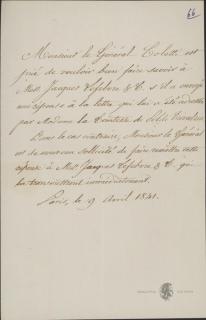 66
Monsieur le Général Colotti est
prié de vouloir bien faire savoir à
Mess. Jacques Lefebvre & C. s'il a envoyé
une réponse à la lettre qui lui a été adressée
par Madame la Comtesse de
Dans le cas contraire, Monsieur le Général
est de nouveau sollicité de faire remettre cette
réponse à Mess. Jacques Lefebvre & C. qui
la transmettront immédiatement.
Paris, le 9 Avril 1841.